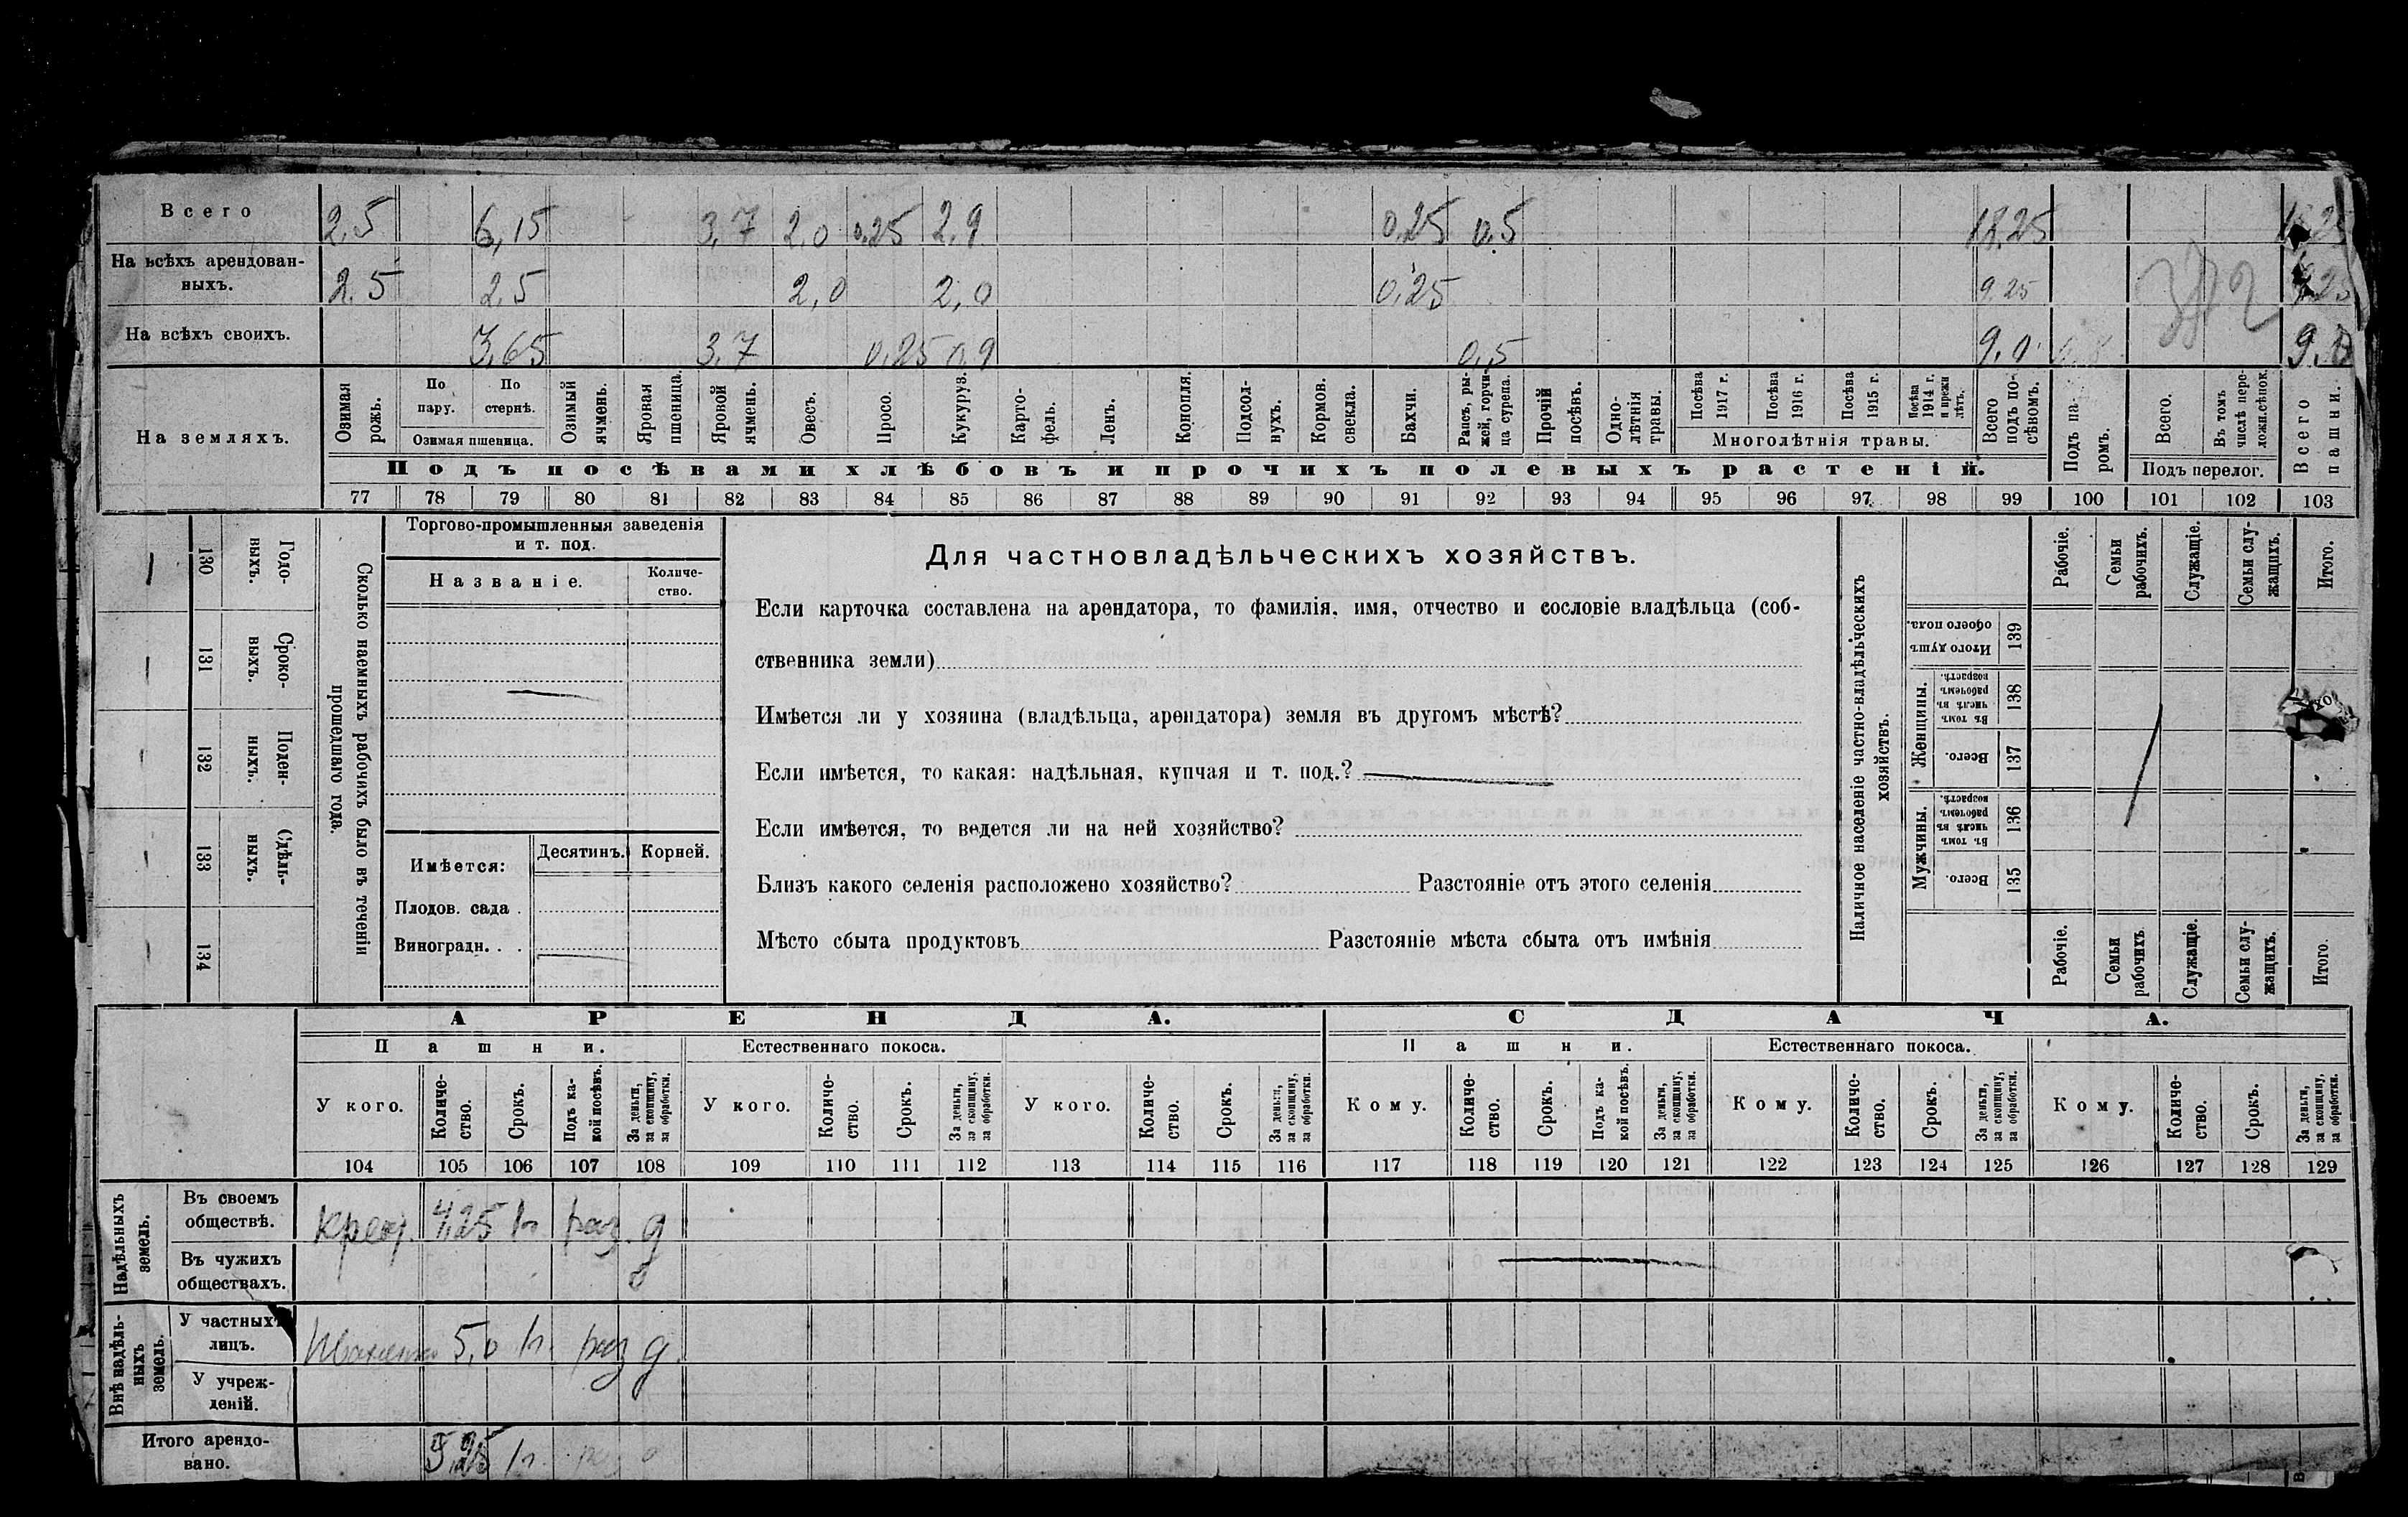 Всего 2,5 6,15 3,7 2,0 0,25 2,9 0,25 0,5 18,25
На всѣхъ арендован-
ныхъ. 2,5 2,5 2,0 2,0 0,25 9,25
На всѣхъ своихъ. 3,65 3,7 0,25 0,9 0,5 9,0 9,0
На земляхъ.
Озимая рожь.
По пару.
По стернѣ.
Озимая пшеница.
Озимый ячмень.
Яровая пшеница.
Яровой ячмень.
Овесъ.
Просо.
Кукуруз.
Карто-
фель.
Ленъ.
Конопля.
Подсол-
нухъ.
Кормов.
свекла.
Бахчи.
Рапсъ, ры-
жей, горчи-
ца сурепа.
Прочій
посѣвъ.
Одно-
лѣтнія
травы.
Посѣва
1917 г.
Посѣва
1916 г.
Посѣва
1915 г.
Посѣва
1914 г.
и прежн
лѣтъ.
Многолѣтнія травы.
Всего
подъ по-
сѣвомъ.
Подъ па-
ромъ.
Всего.
Въ томъ
числѣ пере-
ложн.сѣнок.
Подъ перелог.
Всего
пашни.
Подъ посѣвами хлѣбовъ и прочихъ полевыхъ растеній.
77 78 79 80 81 82 83 84 85 86 87 88 89 90 91 92 93 94 95 96 97 98 99 100 101 102 103
130 Годо-
выхъ.
131 Сроко-
выхъ.
132 Поден-
ныхъ.
133 Сдѣль-
ныхъ.
134
Сколько наемныхъ рабочихъ было въ теченіи
прошедшаго года.
Торгово-промышленныя заведенія
и т. под.
Названіе.
Количе-
ство.
Имѣется:
Десятинъ.
Корней.
Плодов. сада .
Виноградн. . .
Для частновладѣльческихъ хозяйствъ.
Если карточка составлена на арендатора, то фамилія, имя, отчество и сословіе владѣльца (соб-
ственника земли)
Имѣется ли у хозяина (владѣльца, арендатора) земля въ другомъ мѣстѣ?
Если имѣется, то какая: надѣльная, купчая и т. под.?
Если имѣется, то ведется ли на ней хозяйство?
Близъ какого селенія расположено хозяйство? Разстояніе отъ этого селенія
Мѣсто сбыта продуктовъ Разстояніе мѣста сбыта отъ имѣнія
Наличное населеніе частно-владѣльческихъ
хозяйствъ.
Рабочіе.
Семьи
рабочихъ.
Служащіе.
Семьи слу-
жащихъ.
Итого.
Итого душъ
обоего пола.
139
Женщины.
Въ томъ
числѣ въ
рабочемъ
возрастѣ.
138
Всего.
137
Мужчины.
Въ томъ
числѣ въ
рабочемъ
возрастѣ.
136
Всего.
135
Рабочіе.
Семьи
рабочихъ.
Служащіе.
Семьи слу-
жащихъ.
Итого.
АРЕНДА.
СДАЧА.
Пашни.
Естественнаго покоса.
Пашни.
Естественнаго покоса.
У кого.
Количе-
ство.
Срокъ.
Подъ ка-
кой посѣвъ.
За деньги,
за скопщину,
за обработки.
У кого.
Количе-
ство.
Срокъ.
За деньги,
за скопщину,
за обработки.
У кого.
Количе-
ство.
Срокъ.
За деньги,
за скопщину,
за обработки.
Кому.
Количе-
ство.
Срокъ.
Подъ ка-
кой посѣвъ.
За деньги,
за скопщину,
за обработки.
Кому.
Количе-
ство.
Срокъ.
За деньги,
за скопщину,
за обработки.
Кому.
Количе-
ство.
Срокъ.
За деньги,
за скопщину,
за обработки.
104 105 106 107 108 109 110 111 112 113 114 115 116 117 118 119 120 121 122 123 124 125 126 127 128 129
Надѣльныхъ
земель.
Въ своемъ
обществѣ. 4,25 раз. д
Въ чужихъ
обществахъ.
Внѣ надѣль-
ныхъ
земель.
У частныхъ
лицъ. 5,0 раз д.
У учреж-
деній.
Итого арендо-
вано.